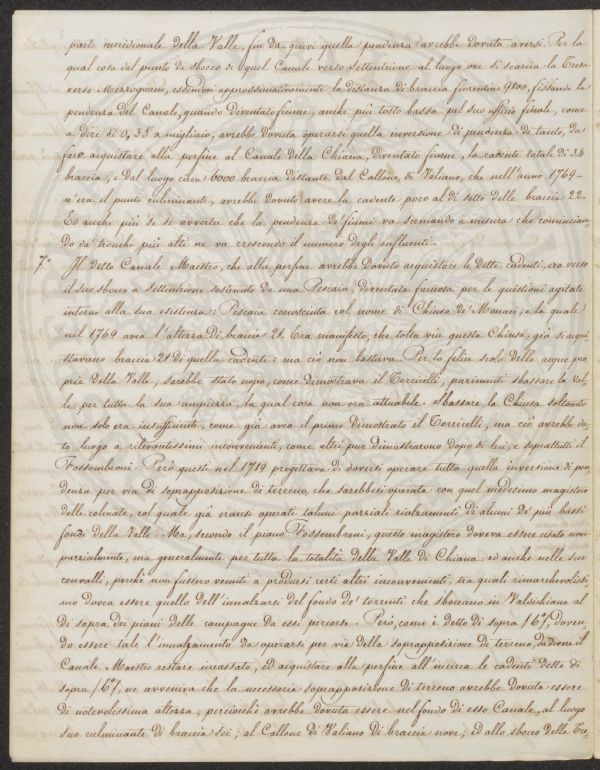 parte meridionale della Valle, fin da quivi quella pendenza avrebbe dovuta aversi. Per la
qual cosa dal punto di sbocco di quel Canale verso Settentrione al luogo ove si scarica la Tresa
verso Mezzogiorno, essendovi approssimativamente la distanza di braccia fiorentine 9800, fissando la
pendenza del Canale, quando diventato fiume, anche più tosto bassa pel suo ufficio finale, come
a dire di 0,35 a migliaio, avrebbe dovuta operarsi quella inversione di pendenza di tanto, da
fare acquistare alla perfine al Canale della Chiana, diventato fiume, la cadente totale di 34
braccia, e dal luogo circa 6000 braccia distante dal Callone di Valiano, che nell'anno 1769 –
n'era il punto culminante, avrebbe dovuto avere la cadente poco al di sotto delle braccia 22.
Ed anche più se si avverta che la pendenza de' fiumi va scemando a misura che comincian-
do da' tronchi più alti ne va crescendo il numero degli influenti.
7.° Il detto Canale Maestro, che alla perfine avrebbe dovuto acquistare le dette cadenti, era verso
il suo sbocco a settentrione sostenuto da una Pescaia, diventata famosa per le quistioni agitate
intorno alla sua esistenza: Pescaia conosciuta col nome di Chiusa de' Monaci; e la quale
nel 1769 avea l'altezza di braccia 21. Era manifesto, che tolta via questa Chiusa, già si acqui-
stavano braccia 21 di quella cadente: ma ciò non bastava. Per lo felice scolo delle acque pro-
prie della Valle, sarebbe stato uopo, come dimostrava il Torricelli, parimenti sbassare la Val-
le per tutta la sua ampiezza, la qual cosa non era attuabile. Sbassare la Chiusa soltanto
non solo era insufficiente, come già avea il primo dimostrato il Torricelli, ma ciò avrebbe da-
to luogo a rilevantissimi inconvenienti, come altri pur dimostrarono dopo di lui, e soprattutti il
Fossombroni. Però questi nel 1789 progettava di doversi operare tutta quella inversione di pen-
denza per via di soprapposizione di terreno, che sarebbesi operata con quel medesimo magistero
delle colmate, col quale già eransi operati taluni parziali rialzamenti di alcuni de' più bassi
fondi della Valle. Ma, secondo il piano Fossombroni, questo magistero doveva essere usato non
parzialmente, ma generalmente per tutta la totalità della Valle di Chiana: ed anche nelle sue
convalli, perchè non fussero venuti a prodursi certi altri inconvenienti, tra quali rimarchevolissi-
mo dovea essere quello dell'innalzarsi del fondo de' torrenti che sboccano in Valdichiana al
di sopra dei piani delle campagne da essi percorse. Però, come è detto di sopra (6.°), doven-
do essere tale l'innalzamento da operarsi per via della soprapposizione di terreno, da dovere il
Canale Maestro restare incassato, ed acquistare alla perfine all'incirca le cadenti dette di
sopra (6.°), ne avveniva che la necessaria soprapposizione di terreno avrebbe dovuta essere
di notevolissima altezza, perciocchè avrebbe dovuta essere nel fondo di esso Canale, al luogo
suo culminante di braccia sei; al Callone di Valiano di braccia nove; ed allo sbocco della Tre